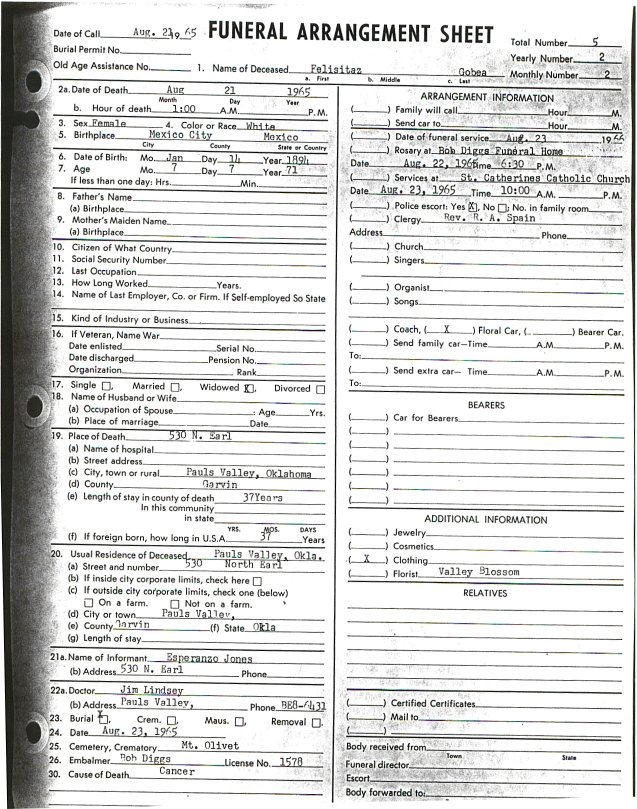 FUNERAL ARRANGEMENT SHEET
Date of Call Aug. 21 19 65
Burial Permit No.
Old Age Assistance No. 1. Name of Deceased Felisitaz Gobea
a. First b. Middle c. Last
Total Number 5
Yearly Number 2
Monthly Number 2
2a. Date of Death Aug 21 1965
Month Day Year
b. Hour of death 1:00 A.M. P.M.
3. Sex Female 4. Color or Race White
5. Birthplace Mexico City Mexico
City County State or Country
6. Date of Birth: Mo. Jan Day 14 Year 1894
7. Age Mo. 7 Day 7 Year 71
If less than one day: Hrs. Min.
8. Father's Name
(a) Birthplace
9. Mother's Maiden Name
(a) Birthplace
10. Citizen of What Country
11. Social Security Number
12. Last Occupation
13. How Long Worked Years.
14. Name of Last Employer, Co. or Firm. If Self-employed So State
15. Kind of Industry or Business
16. If Veteran, Name War
Date enlisted Serial No.
Date discharged Pension No.
Organization Rank
17. Single ☐, Married ☐, Widowed ☒, Divorced ☐
18. Name of Husband or Wife
(a) Occupation of Spouse : Age Yrs.
(b) Place of marriage Date
19. Place of Death 530 N. Earl
(a) Name of hospital
(b) Street address
(c) City, town or rural Pauls Valley, Oklahoma
(d) County Garvin
(e) Length of stay in county of death 37Years
In this community
in state
YRS. MOS. DAYS
(f) If foreign born, how long in U.S.A. 37 Years
20. Usual Residence of Deceased Pauls Valley, Okla.
(a) Street and number 530 North Earl
(b) If inside city corporate limits, check here ☐
(c) If outside city corporate limits, check one (below)
☐ On a farm. ☐ Not on a farm.
(d) City or town Pauls Valley,
(e) County Garvin (f) State Okla
(g) Length of stay
21a. Name of Informant Esperanzo Jones
(b) Address 530 N. Earl Phone
22a. Doctor Jim Lindsey
(b) Address Pauls Valley, Phone BE8-6431
23. Burial ☒, Crem. ☐, Maus. ☐, Removal ☐.
24. Date Aug. 23, 1965
25. Cemetery, Crematory Mt. Olivet
26. Embalmer Bob Diggs License No. 1578
30. Cause of Death Cancer
ARRANGEMENT INFORMATION
( ) Family will call Hour M.
( ) Send car to Hour M.
( ) Date of funeral service Aug. 23 19
( ) Rosary at Bob Diggs Funeral Home
Date Aug. 22, 1965 Time 6:30 P.M.
( ) Services at St. Catherines Catholic Church
Date Aug. 23, 1965 Time 10:00 A.M. P.M.
( ) Police escort: Yes ☒, No ☐; No. in family room
( ) Clergy Rev. R. A. Spain
Address Phone
( ) Church
( ) Singers
( ) Organist
( ) Songs
( ) Coach, ( X ) Floral Car, ( ) Bearer Car.
( ) Send family car—Time A.M. P.M.
To:
( ) Send extra car— Time A.M. P.M.
To:
BEARERS
( ) Car for Bearers
( )
( )
( )
( )
( )
( )
ADDITIONAL INFORMATION
( ) Jewelry
( ) Cosmetics
( X ) Clothing
( ) Florist Valley Blossom
RELATIVES
( ) Certified Certificates
( ) Mail to
( )
Body received from
Town State
Funeral director
Escort
Body forwarded to: